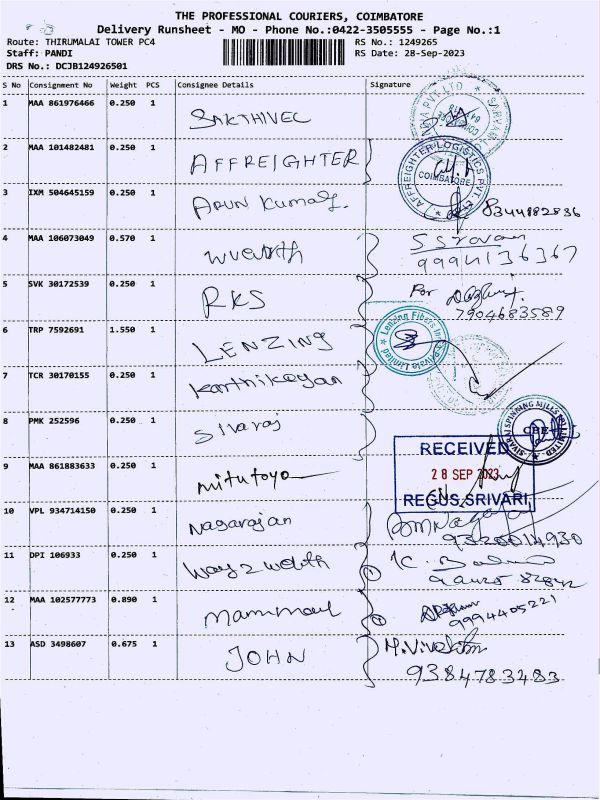 THE PROFESSIONAL COURIERS, COIMBATORE
Delivery Runsheet - MO - Phone No.:0422-3505555 - Page No.:1
Route: THIRUMALAI TOWER PC4 RS No.: 1249265
Staff: PANDI RS Date: 28-Sep-2023
DRS No.: DCJB124926501
S No Consignment No Weight PCS Consignee Details Signature
1 MAA 861976466 0.250 1 SAKTHIVEL
2 MAA 101482481 0.250 1 AFFREIGHTER
AFFREIGHTER LOGISTICS PVT
COIMBATORE
3 IXM 504645159 0.250 1 Arun Kumar. 8344882836
4 MAA 106073049 0.570 1 wuerth
9994136367
5 SVK 30172539 0.250 1 RKS For
7904683589
6 TRP 7592691 1.550 1 LENZING
Lenzing Fibers India Private Limited
7 TCR 30170155 0.250 1 Karthikeyan
8 PMK 252596 0.250 1 Sivaraj
SIVARAJ SPINNING MILLS LIMITED
CBE
9 MAA 861883633 0.250 1 mitutoyo
RECEIVED
28 SEP 2023
REGUS SRIVARI
10 VPL 934714150 0.250 1 Nagarajan
11 DPI 106933 0.250 1 Way 2 wealth
12 MAA 102577773 0.890 1
9994405221
13 ASD 3498607 0.675 1 JOHN
9384783483